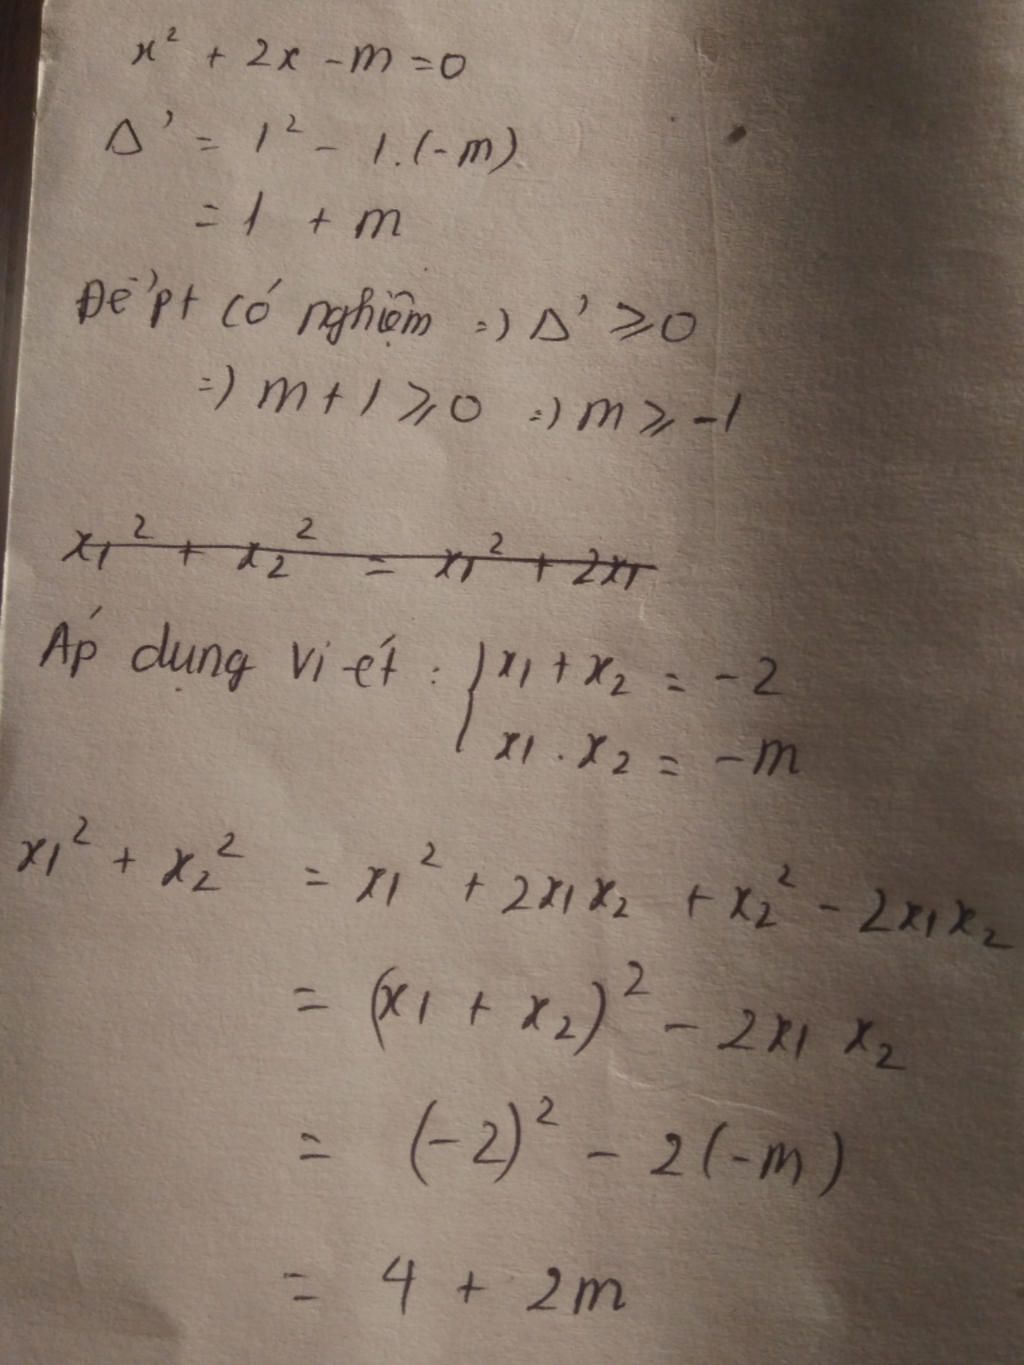 x² + 2x - m = 0
Δ' = 1² - 1.(-m)
= 1 + m
Để pt có nghiệm =) Δ' ⩾ 0
=) m + 1 ⩾ 0 =) m ⩾ -1
x1² + x2² = x1² + 2x1
Áp dụng Vi-ét : { x1 + x2 = -2
x1 . x2 = -m
x1² + x2² = x1² + 2x1x2 + x2² - 2x1x2
= (x1 + x2)² - 2x1 x2
= (-2)² - 2(-m)
= 4 + 2m